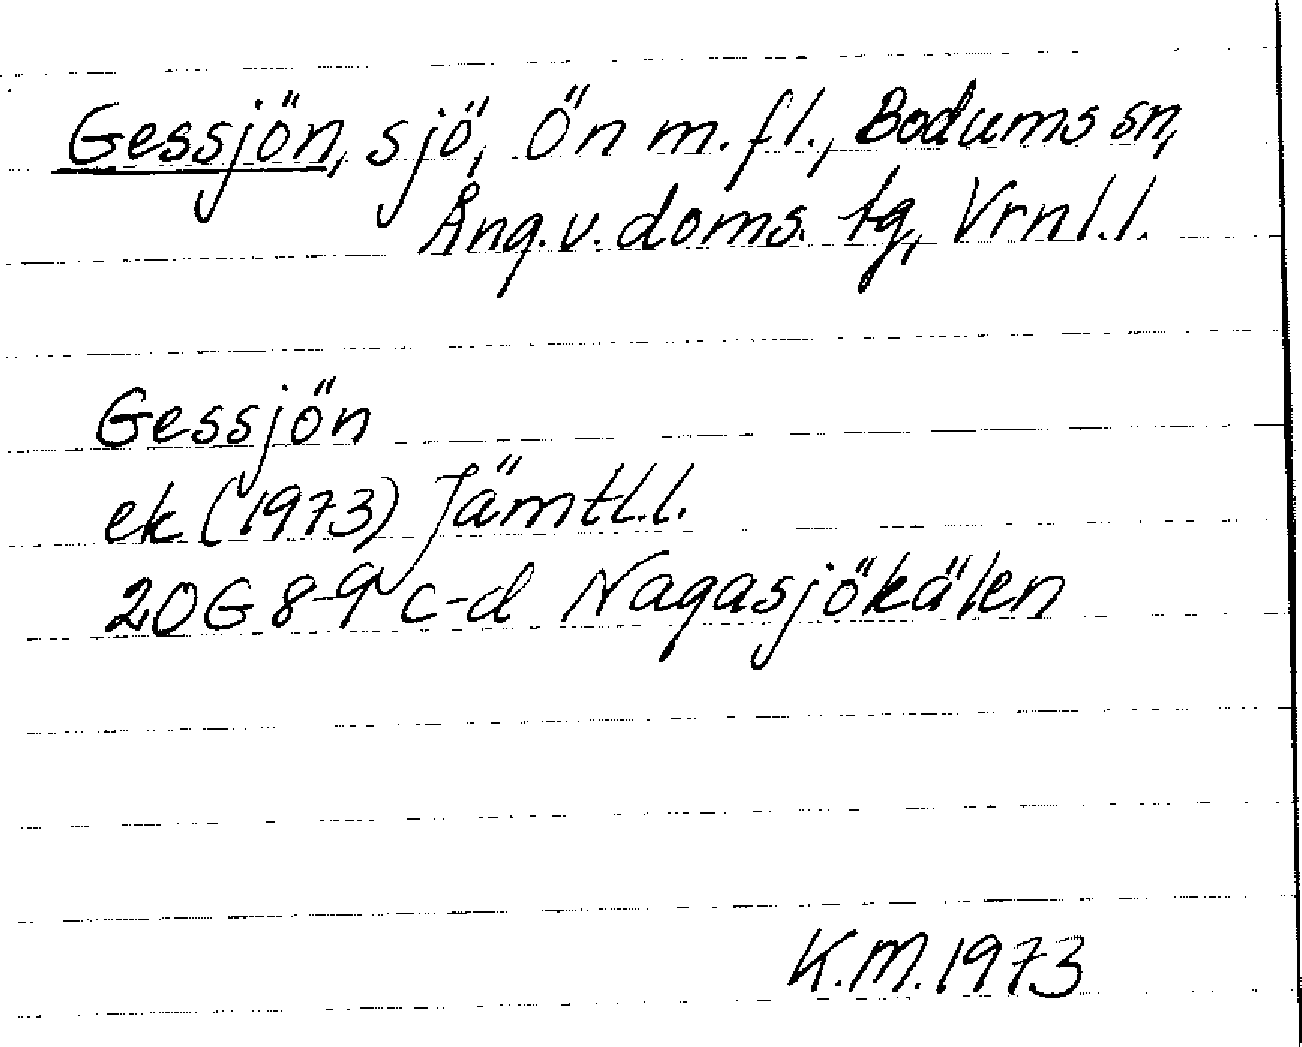 Gessjön, sjö, Ön m.fl., Bodums sn,
Ång.v. doms. tg, Vrnl.l.
Gessjön
ek (1973) Jämtl.l.
20G 8-9 c-d Nagasjökälen
K.M. 1973